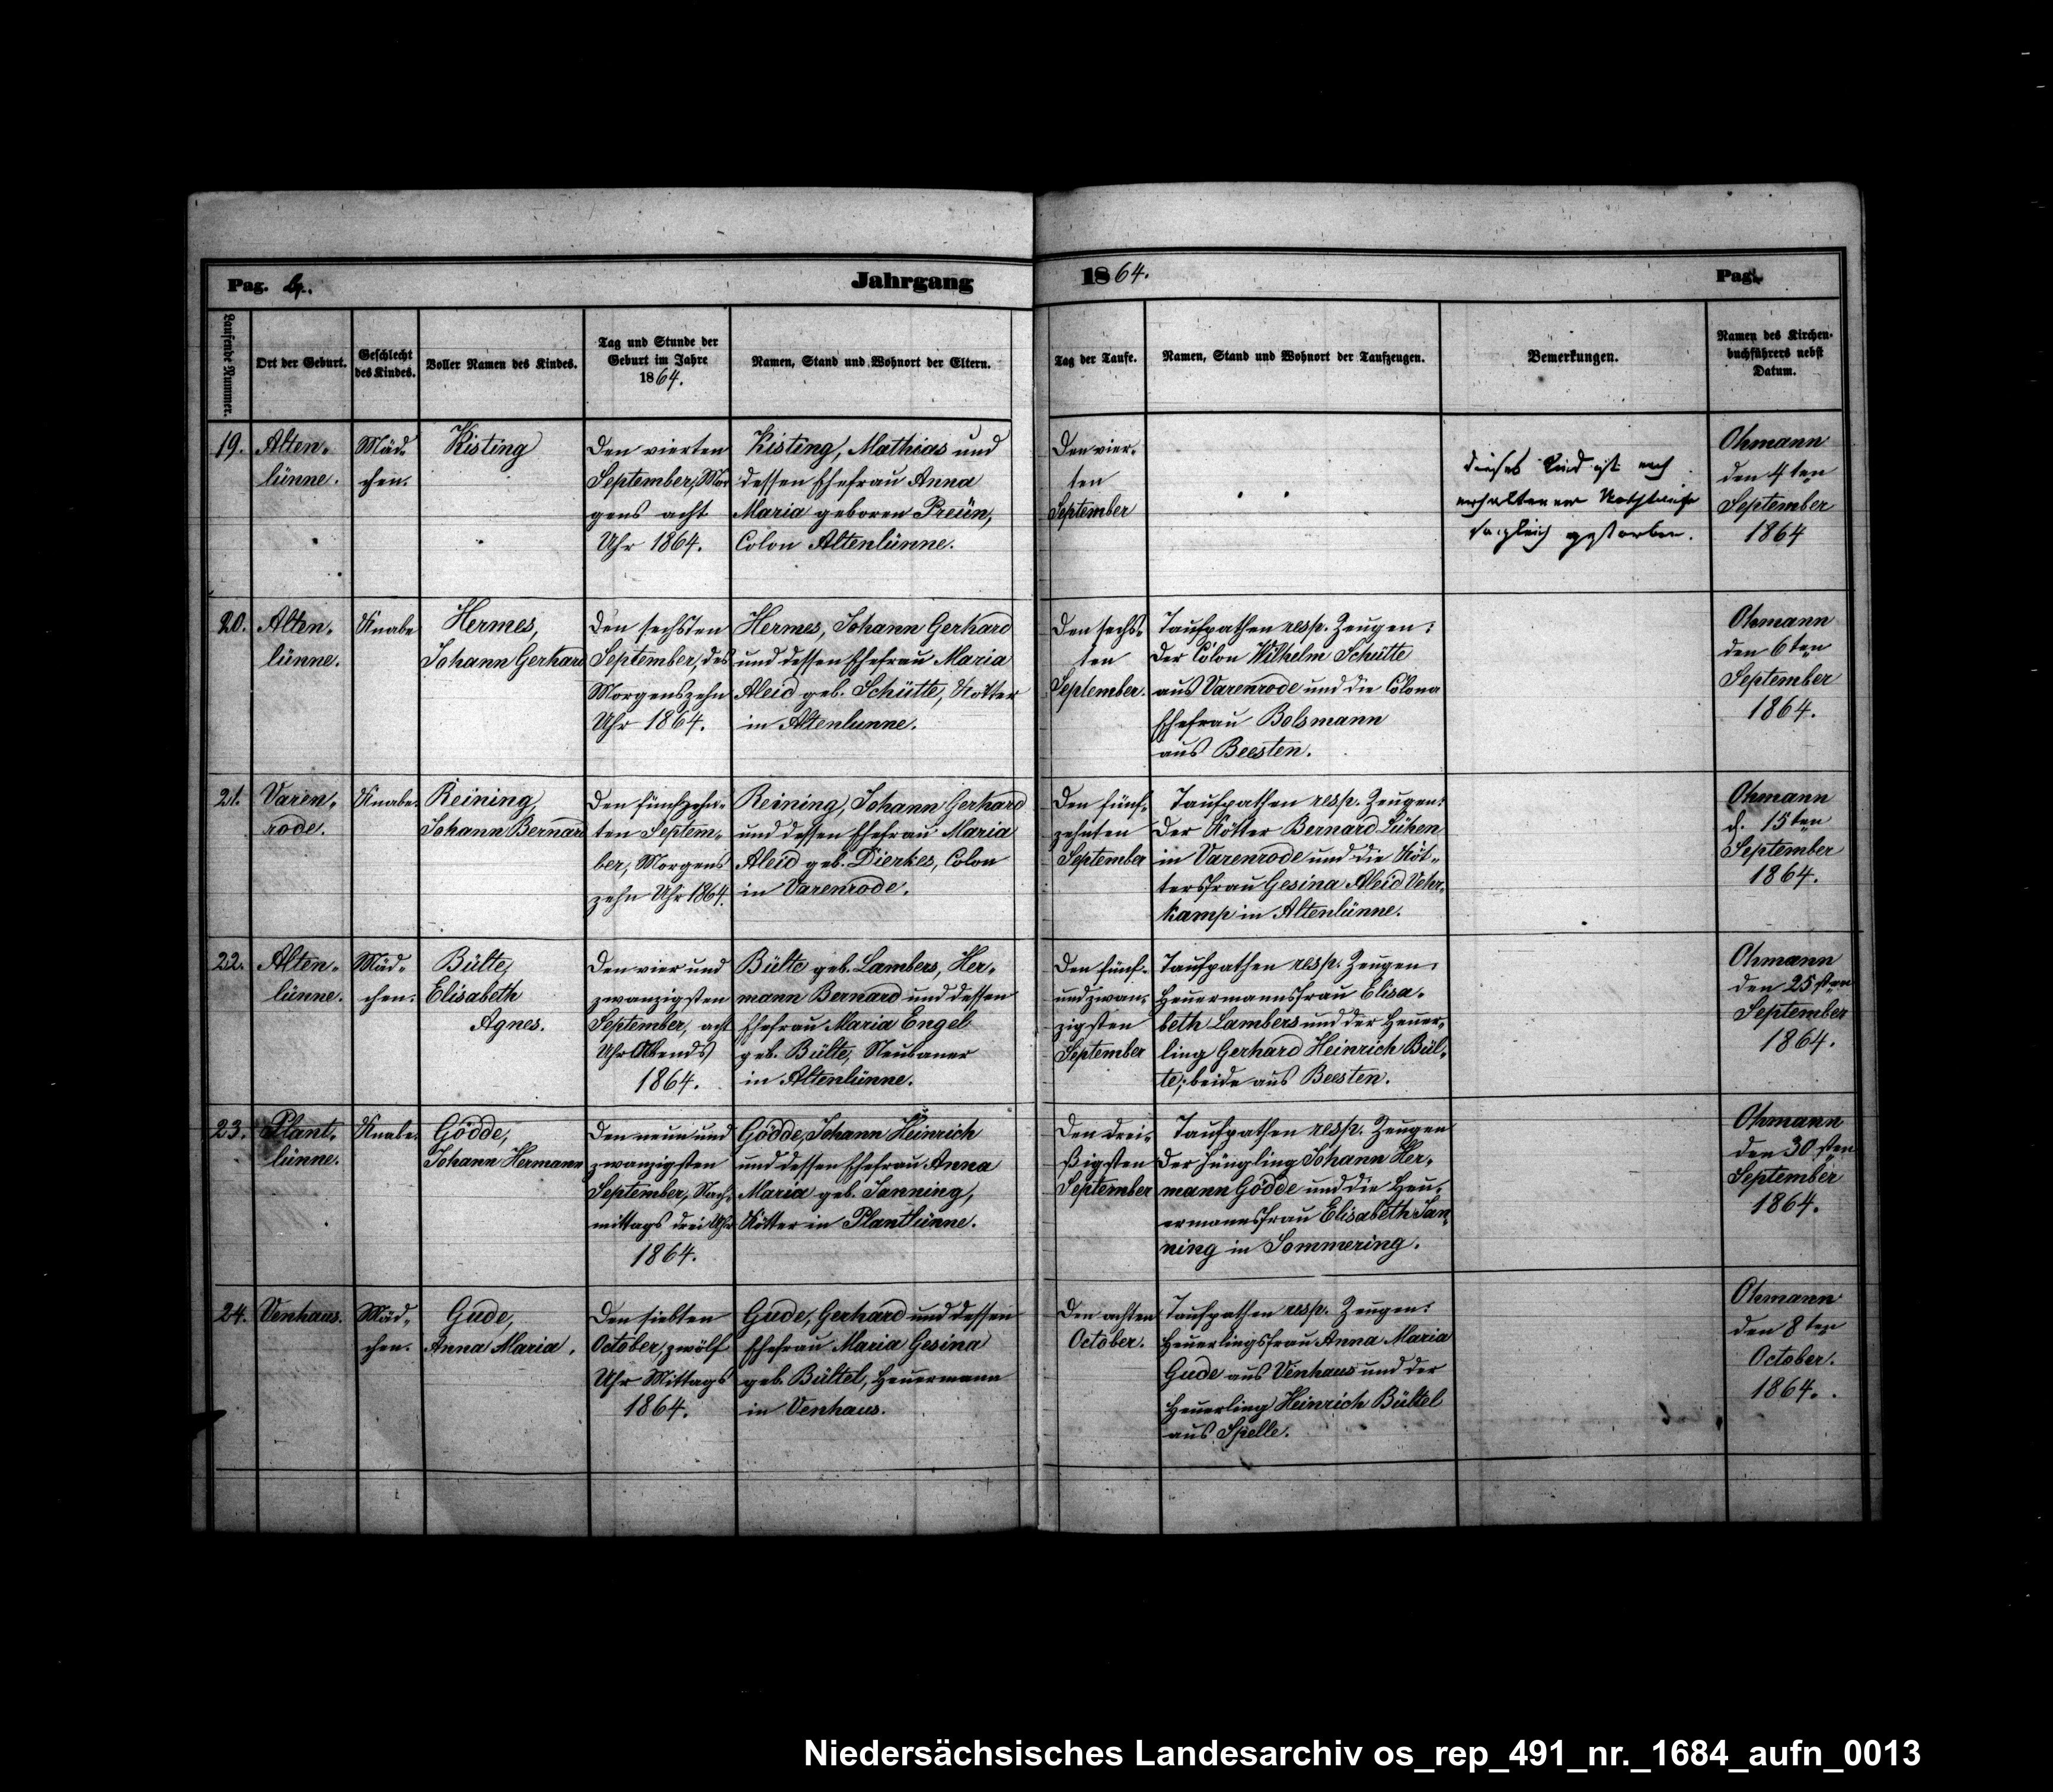 Pag. 4. Jahrgang 1864. Pag.
Laufende Nummer.
Ort der Geburt.
Geschlecht
des Kindes.
Voller Namen des Kindes.
Tag und Stunde der
Geburt im Jahre
1864.
Namen, Stand und Wohnort der Eltern.
Tag der Taufe.
Namen, Stand und Wohnort der Taufzeugen.
Bemerkungen.
Namen des Kirchen-
buchführers nebst
Datum.
19.
Alten-
lünne.
Mäd-
chen.
Kisting
Den vierten
September, Mor
gens acht
Uhr 1864.
Kisting, Mathias und
dessen Ehefrau Anna
Maria geboren Preün,
Colon Altenlünne.
Den vier-
ten
September
dieses Kind ist nach
erhaltener Nothtaufe
sogleich gestorben.
Ohmann
den 4ten
September
1864
20.
Alten-
lünne.
Knabe
Hermes,
Johann Gerhard
Den sechsten
September, des
Morgens zehn
Uhr 1864.
Hermes, Johann Gerhard
und dessen Ehefrau Maria
Aleid geb. Schütte, Kötter
in Altenlunne.
Den sechs-
ten
September.
Taufpathen resp. Zeugen:
Der Colon Wilhelm Schütte
aus Varenrode und die Colona
Ehefrau Bolsmann
aus Beesten.
Ohmann
den 6ten
September
1864.
21.
Varen-
rode.
Knabe.
Reining,
Johann Bernard
Den fünfzehn-
ten Septem-
ber, Morgens
zehn Uhr 1864.
Reining, Johann Gerhard
und dessen Ehefrau Maria
Aleid geb. Dierkes, Colon
in Varenrode.
Den fünf-
zehnten
September
Taufpathen resp. Zeugen:
Der Kötter Bernard Lühen
in Varenrode und die Köt-
tersfrau Gesina Aleid Vehr-
kamp in Altenlünne.
Ohmann
d. 15ten
September
1864.
22.
Alten-
lünne.
Mäd-
chen.
Bülte,
Elisabeth
Agnes.
Den vier und
zwanzigsten
September, acht
Uhr Abends
1864.
Bülte geb. Lambers, Her-
mann Bernard und dessen
Ehefrau Maria Engel
geb. Bülte, Neubauer
in Altenlünne.
Den fünf-
und zwan-
zigsten
September
Taufpathen resp. Zeugen:
Heuermannsfrau Elisa-
beth Lambers und der Heuer-
ling Gerhard Heinrich Bül-
te; beide aus Beesten.
Ohmann
den 25sten
September
1864.
23.
Plant-
lünne.
Knabe.
Gödde,
Johann Hermann
Den neun und
zwanzigsten
September, Nach-
mittags drei Uhr
1864.
Gödde, Johann Heinrich
und dessen Ehefrau Anna
Maria geb. Janning,
Kötter in Plantlünne.
Den drei-
ßigsten
September
Taufpathen resp. Zeugen
Der Jüngling Johann Her-
mann Gödde und die Heu-
ermannsfrau Elisabeth Jan-
ning in Sommering.
Ohmann
den 30sten
September
1864.
24.
Venhaus.
Mäd-
chen.
Gude,
Anna Maria.
Den siebten
October, zwölf
Uhr Mittags
1864.
Gude, Gerhard und dessen
Ehefrau Maria Gesina
geb. Bültel, Heuermann
in Venhaus.
Den achten
October.
Taufpathen resp. Zeugen:
Heuerlingsfrau Anna Maria
Gude aus Venhaus und der
Heuerling Heinrich Bültel
aus Spelle.
Ohmann
den 8ten
October.
1864.
Niedersächsisches Landesarchiv os_rep_491_nr._1684_aufn_0013